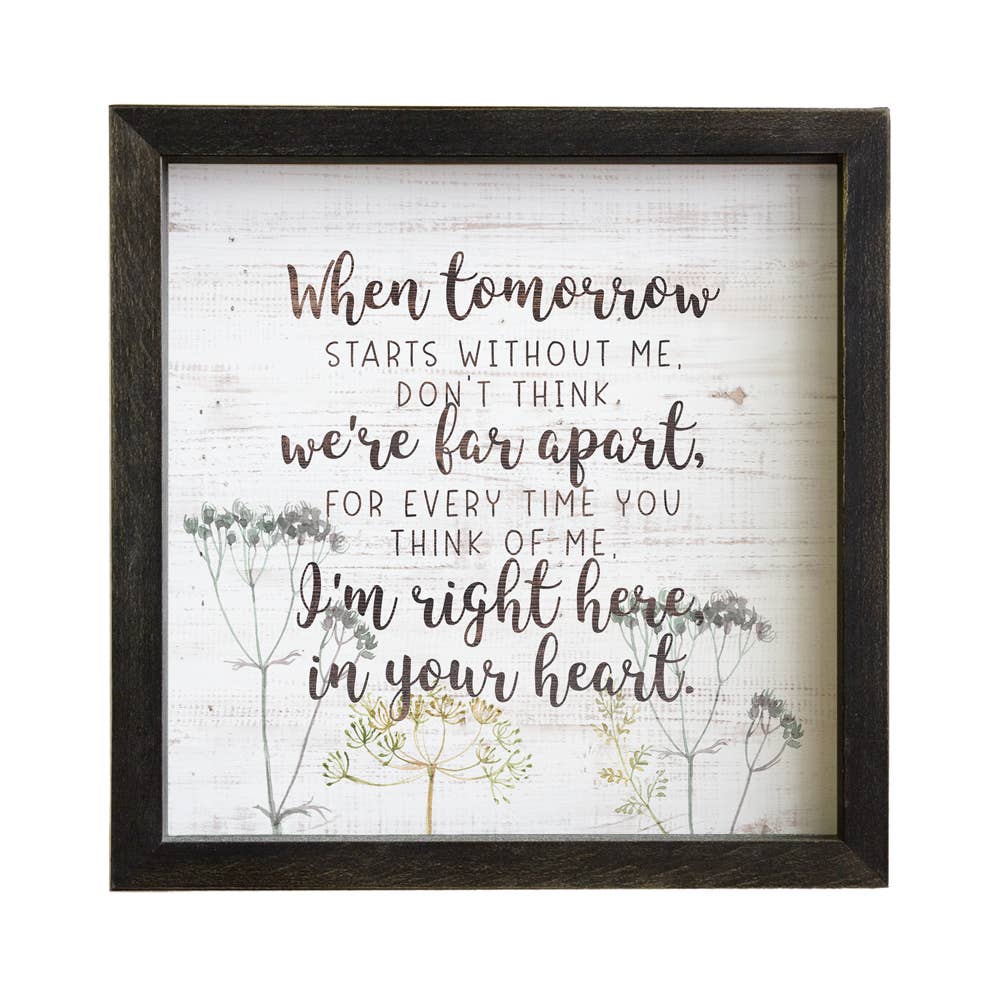 When tomorrow
STARTS WITHOUT ME,
DON'T THINK
we're far apart,
FOR EVERY TIME YOU
THINK OF ME,
I'm right here,
in your heart.